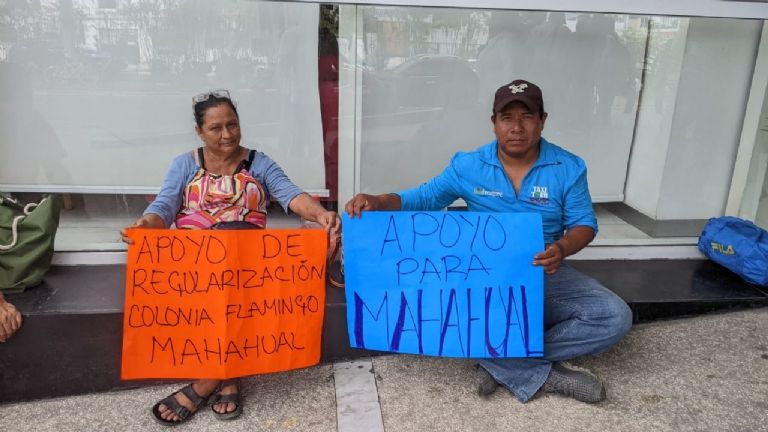 APOYO DE
REGULARIZACIÓN
COLONIA FLAMINGO
MAHAHUAL
APOYO
PARA
MAHAHUAL
TAXI
FILA